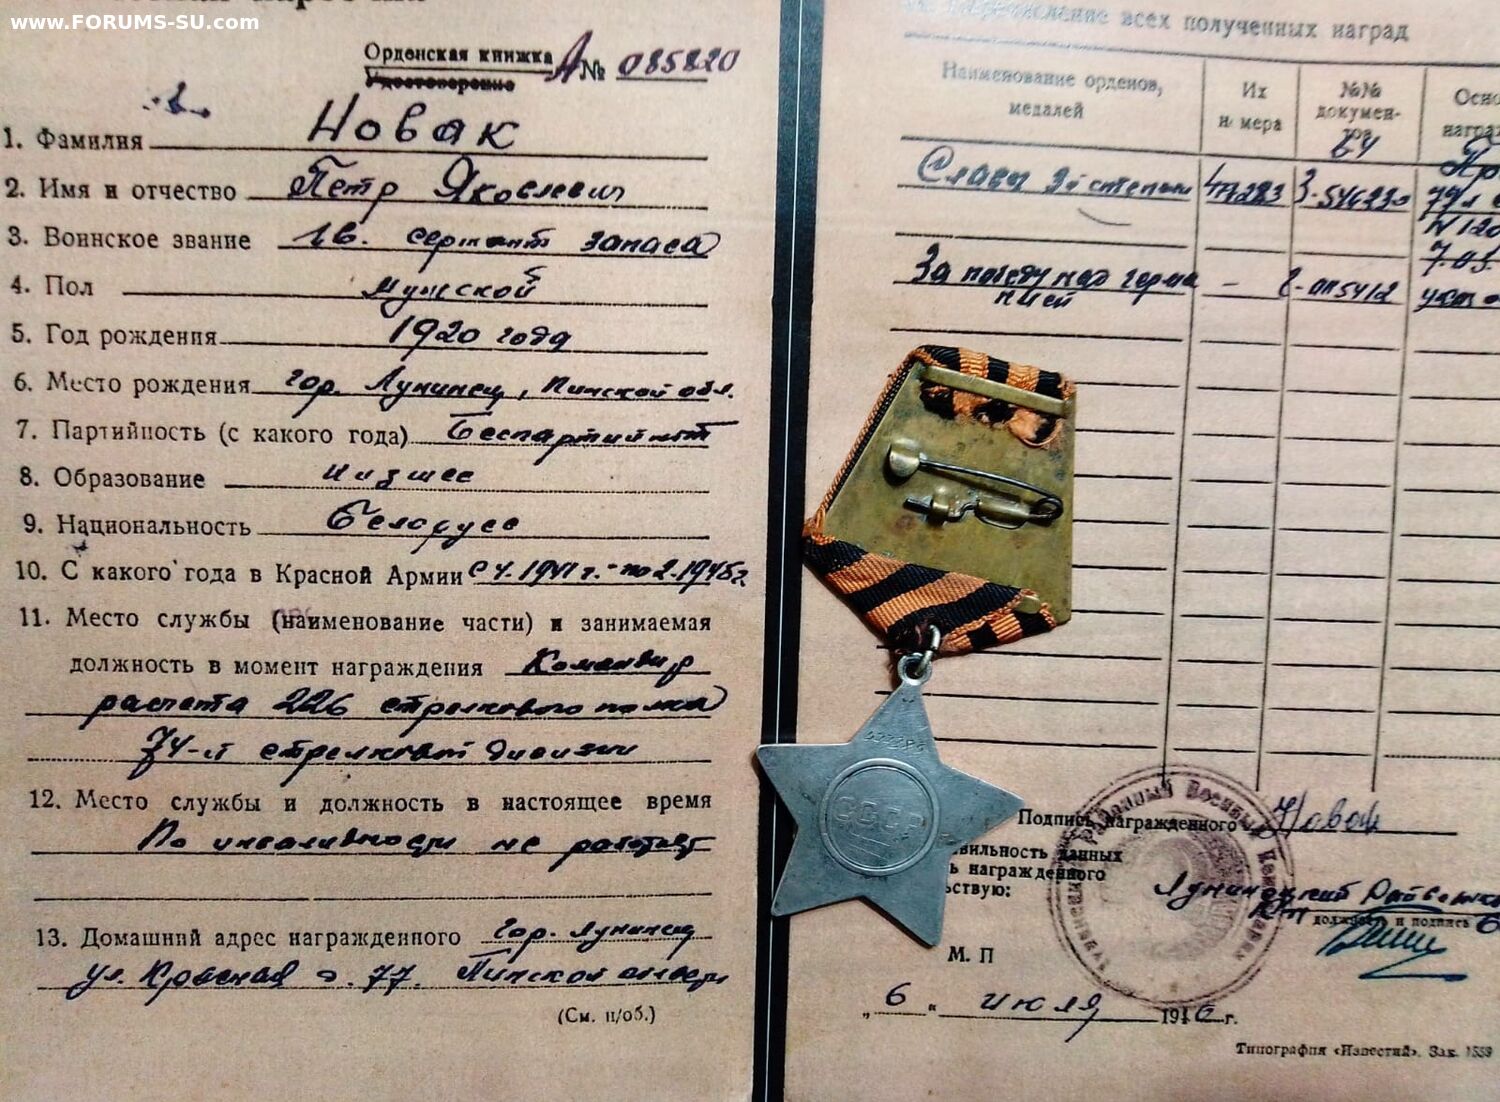 www.FORUMS-SU.com
Орденская книжка А № 085820
Удостоверение
1. Фамилия Новак
2. Имя и отчество Петр Яковлевич
3. Воинское звание гв. сержант запаса
4. Пол мужской
5. Год рождения 1920 года
6. Место рождения гор. Лунинец, Пинской обл.
7. Партийность (с какого года) Беспартийный
8. Образование низшее
9. Национальность Белорусс
10. С какого года в Красной Армии с 4.1941 г. - по 2.1945 г.
11. Место службы (наименование части) и занимаемая
должность в момент награждения Командир
расчета 226 стрелкового полка
74-й стрелковой дивизии
12. Место службы и должность в настоящее время
По инвалидности не работает
13. Домашний адрес награжденного гор. Лунинец
ул. Красная д. 77. Пинской области
(См. н/об.)
перечисление всех полученных наград
Наименование орденов, медалей
Их номера
№№ документов
Осно
награж
Славы 3й степени
За победу над германией -
СССР
Подпись награжденного Новак
авильность данных
ь награжденного
ьствую:
Лунинецкий Райвоенком
должность и подпись
М. П
„ 6 “ июля 1946 г.
Типография «Известий». Зак. 1559